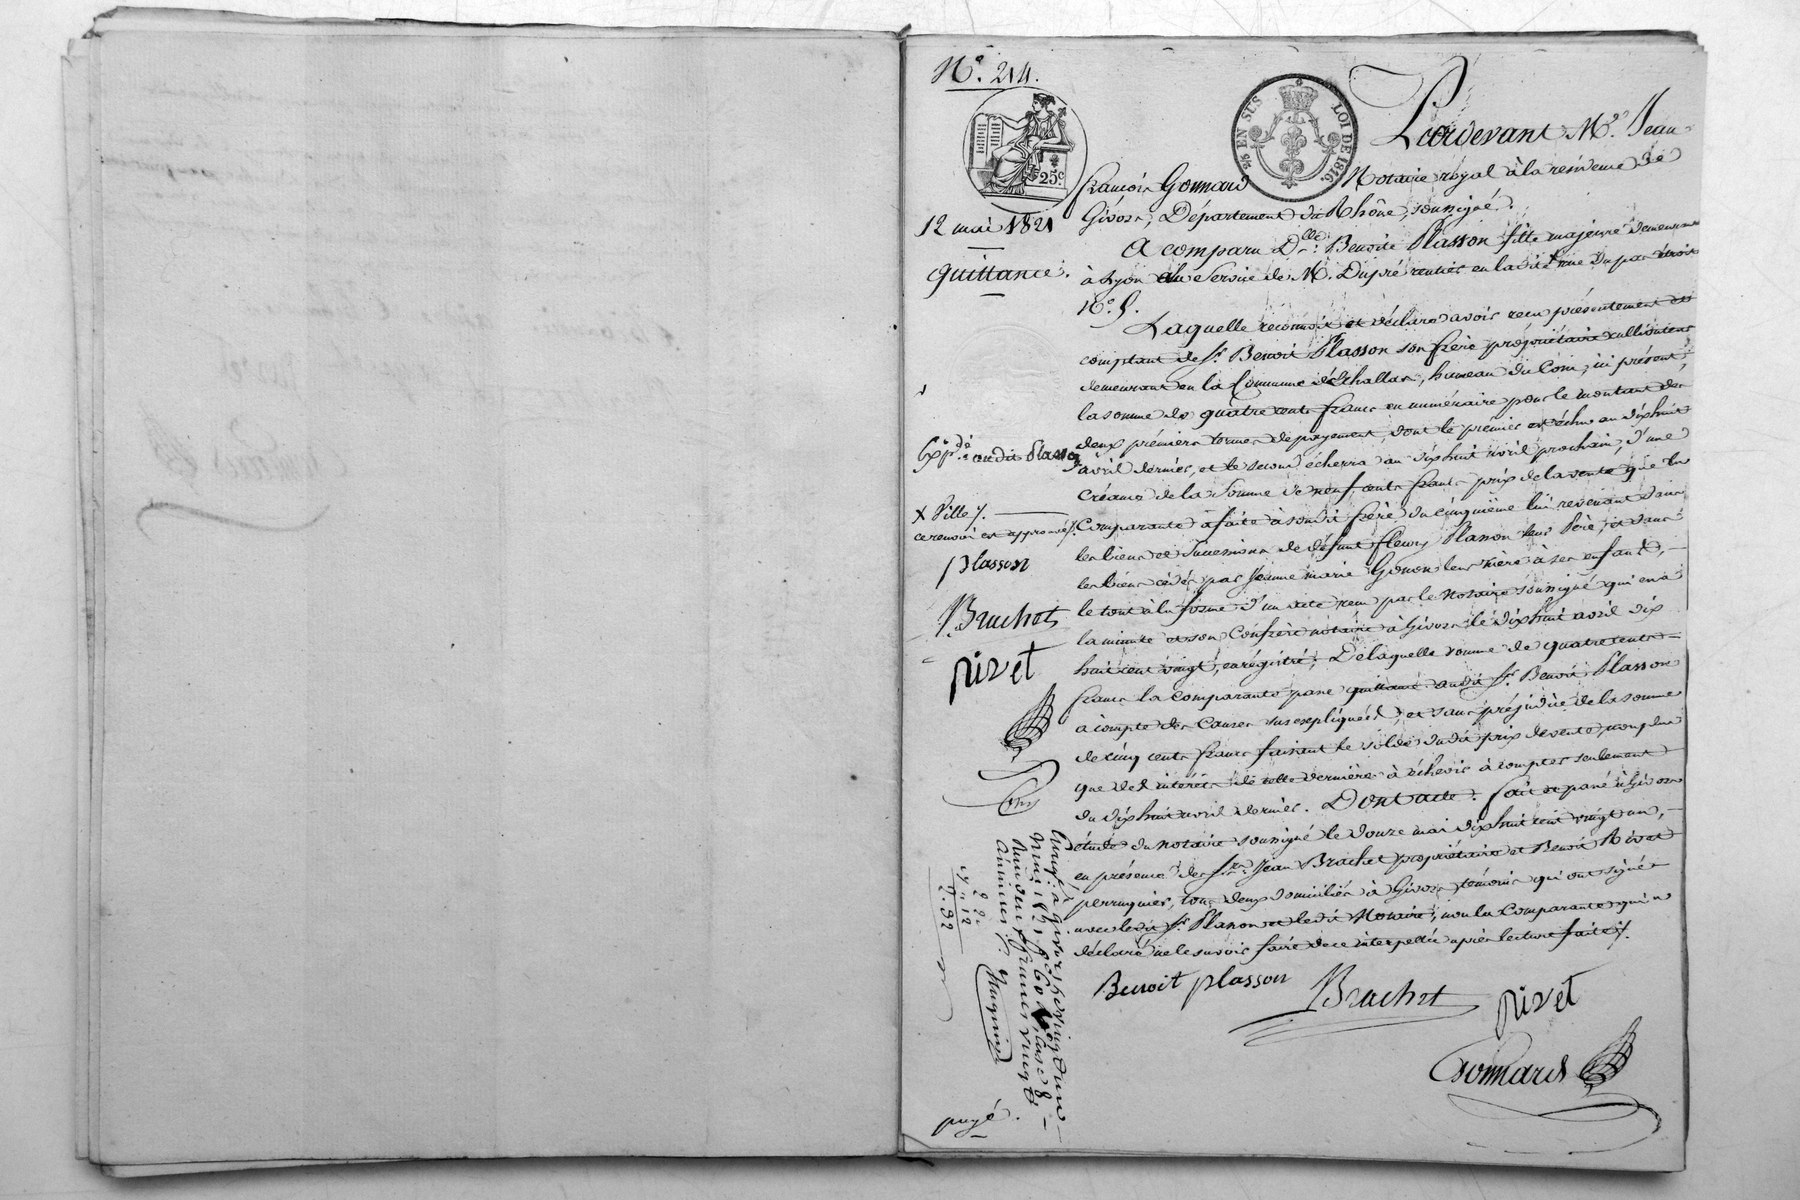 N.º 214.
25.c
5/5 EN SUS LOI DE 1816.
12 mai 1821
quittance.
Expéd.é audit Plasson
x Ville /.
ce renvoi est approuvé /.
Plasson
J. Brachet
rivet
Pardevant M.e Jean
françois Gonnard Notaire royal à la residence de
Givors, Département du Rhône, soussigné.
A comparu D.lle Benoite Plasson fille majeure demeurant
à Lyon au service de M. Dupré rentier en ladite x rue du pas étroit
N.º 9.
Laquelle reconnoit et déclare avoir recu présentement et
comptant de S.r Benoit Plasson son frère propriétaire cultivateur
demeurant en la Commune d'Echallas, hameau du Coin, ici présent,
la somme de quatre cents francs en numéraire pour le montant des
deux prémiers termes de payement, dont le prémier est échu au dixhuit
avril dernier, et le second écherra au dixhuit avril prochain, d'une
créance de la somme de neuf cents francs prix de la vente que la
Comparante a faite à son dit frère du cinquième lui revenant dans
les biens et Successions de défunt fleury Plasson leur Père, et dans
les biens cédés par Jeanne marie Gonon leur mère à ses enfants,
le tout à la forme d'un acte recu par le Notaire soussigné qui en a
la minute et son Confrère notaire à Givors le dixhuit avril dix
huit cent vingt, enrégistré, De laquelle somme de quatre cents
francs la comparante passe quittance audit S.r Benoit Plasson
à compte des causes susexpliquées, et sans préjudice de la somme
de cinq cents francs faisant le solde dudit prix de vente, non plus
que des intérêts de cette dernière à échevoir à compter seulement
du dixhuit avril dernier. Dont acte. fait et passé à Givors
étude du notaire soussigné le douze mai dixhuit cent vingt un,
en présence des S.rs Jean Brachet propriétaire et Benoit Rivet
perruquier, tous deux domiciliés à Givors témoins qui ont signé
avec ledit S.r Plasson et ledit Notaire, non la comparante qui a
déclaré ne le savoir faire de ce interpellée après lecture faite /.
Benoit plasson
J. Brachet
rivet
Gonnard
Enreg.é à Givors le vingt un
mai 1821
Recu deux francs vingt
centimes
2 20
22
2. 32
payé.